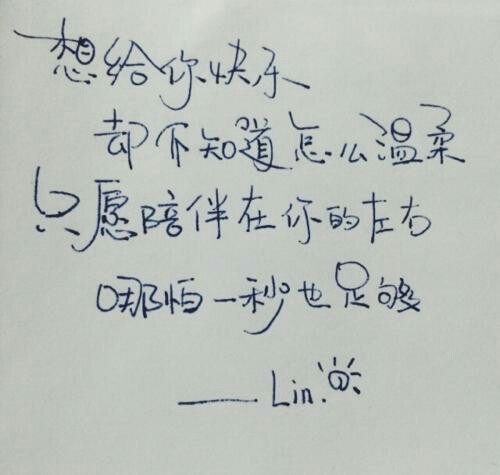 想给你快乐
却不知道怎么温柔
只愿陪伴在你的左右
哪怕一秒也足够
——Lin.